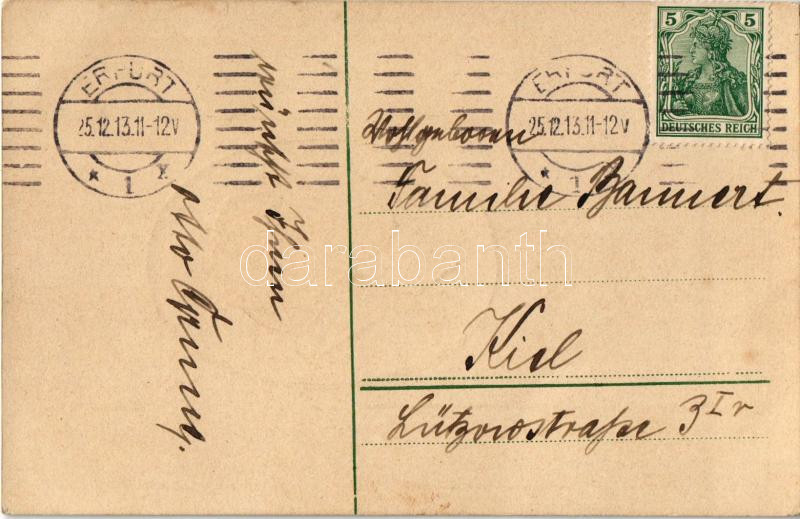 ERFURT
25.12.13.11-12V
* 1 *
wünscht Ihnen
Otto
ERFURT
25.12.13.11-12V
* 1
5 5
DEUTSCHES REICH
Wohlgeboren
Familie Bannert.
Kiel
Lützowstraße 3 I r
darabanth